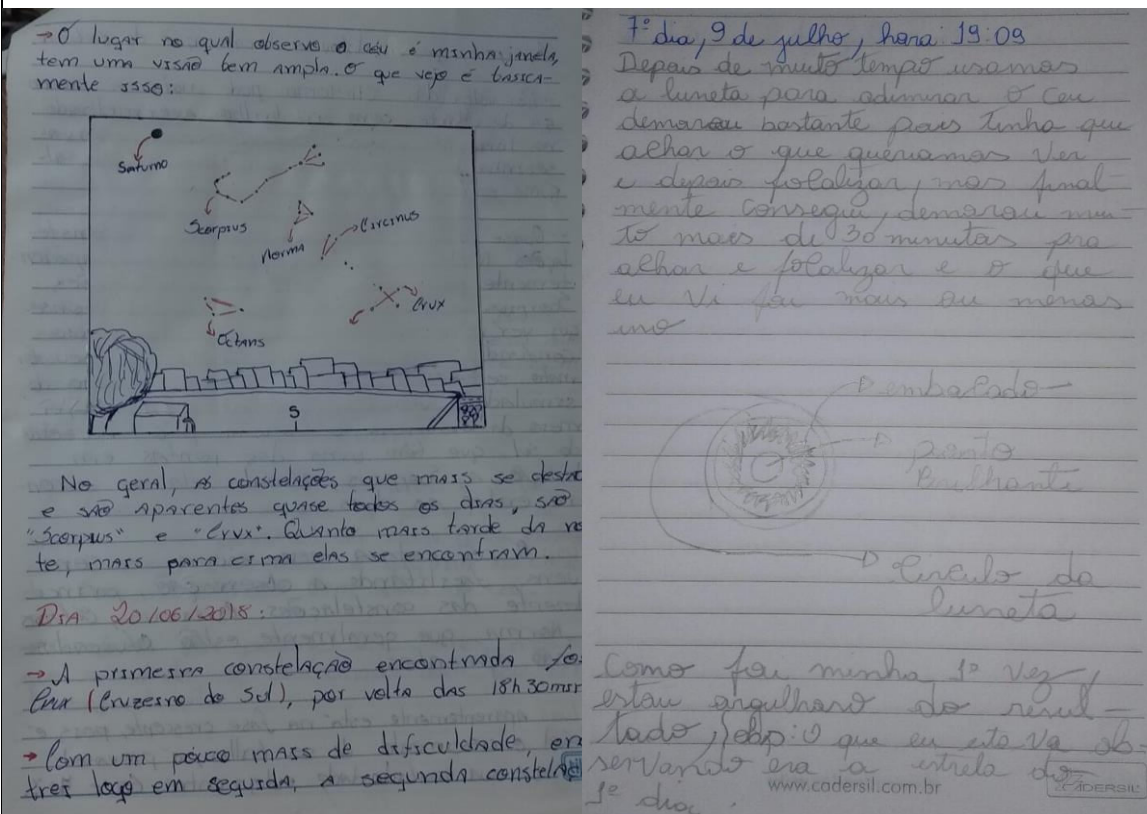 → O lugar no qual observo o céu é minha janela,
tem uma visão bem ampla. O que vejo é basica-
mente isso:
Saturno
Scorpius
Norma
Circinus
Crux
Octans
S
No geral, as constelações que mais se destac
e são aparentes quase todos os dias, são
"Scorpius" e "Crux". Quanto mais tarde da no
te, mais para cima elas se encontram.
Dia 20/06/2018:
→ A primeira constelação encontrada fo
Crux (Cruzeiro do Sul), por volta das 18h30min
→ Com um pouco mais de dificuldade, en
trei logo em seguida, a segunda constela
7º dia, 9 de julho, hora: 19:09
Depois de muito tempo usamos
a luneta para adimirar o ceu
demarou bastante pois tinha que
olhar o que queriamos ver
e depois folalizar, mas final-
mente consegui, demorou mui-
to mais de 30 minutos pra
olhar e folalizar e o que
eu vi foi mais ou menos
embaçado
ponto
Brilhante
Circulo da
luneta
Como foi minha 1ª vez,
estou orgulhoso do resul-
tado, obs: O que eu estava ob
servando era a estrela do
1º dia.
www.cadersil.com.br
CADERSIL